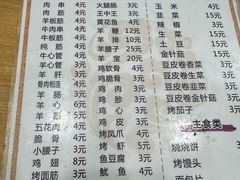 肉串 3元
肉筋 3元
牛板筋 3元
牛肉串 3元
牛筋 3元
纯筋
牛心管
羊肝 3元
骨肉相连 4元
羊肠
羊心管 3元
羊心 3元
五花肉 3元
小腰子 3元
鸡翅
烤面筋
火腿肠 3元
王中王 3元
黄花鱼 4元
羊鞭 12元
羊排 10元
羊腰子 25元
羊宝 20元
鸡软骨 4元
鸡脆骨 4元
鸡肉 3元
鸡胗 3元
鸡心 3元
鸡皮 3元
烤凤爪 4元
烤虾 5元
鱼豆腐 3元
鱿鱼 4元
玉米
韭菜 15元
辣椒 5元
韭菜 15元
土豆 15元
金针菇 15元
豆皮卷香菜 3元
豆皮卷韭菜 3元
豆皮卷金针菇 3元
烤茄子 3元
主食类
烧烧饼
烤馒头
面包片